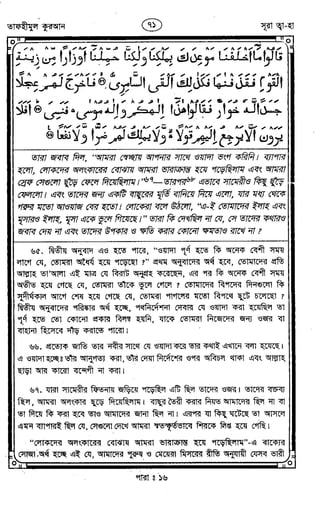 তাফহীমুল কুরআন
৭১
সূরা ত্বা-হা
قَالُوا مَا أَخْلَفْنَا مَوْعِدَكَ بِمَلْكِنَا وَلَٰكِنَّا حُمِّلْنَا أَوْزَارًا مِّن زِينَةِ
الْقَوْمِ فَقَذَفْنَاهَا فَكَذَٰلِكَ أَلْقَى السَّامِرِيُّ ۝ فَأَخْرَجَ لَهُمْ عِجْلًا
جَسَدًا لَّهُ خُوَارٌ فَقَالُوا هَٰذَا إِلَٰهُكُمْ وَإِلَٰهُ مُوسَىٰ فَنَسِيَ ۝ أَفَلَا
يَرَوْنَ أَلَّا يَرْجِعُ إِلَيْهِمْ قَوْلًا وَلَا يَمْلِكُ لَهُمْ ضَرًّا وَلَا نَفْعًا ۝
তারা জবাব দিল, "আমরা স্বেচ্ছায় আপনার সাথে ওয়াদা ভংগ করিনি। ব্যাপার
হলো, লোকদের অলংকারের বোঝায় আমরা ভারাক্রান্ত হয়ে পড়েছিলাম এবং আমরা
স্রেফ সেগুলো ছুঁড়ে ফেলে দিয়েছিলাম।" তারপর এভাবে সামেরীও কিছু ছুঁড়ে
ফেললো। এবং তাদের জন্য একটি বাছুরের মূর্তি বানিয়ে নিয়ে এলো, যার মধ্য থেকে
গরুর মতো আওয়াজ বের হতো। লোকেরা বলে উঠলো, "এ-ই তোমাদের ইলাহ এবং
মূসারও ইলাহ, মূসা একে ভুলে গিয়েছে।" তারা কি দেখছিল না যে, সে তাদের কথারও
জবাব দেয় না এবং তাদের উপকার ও ক্ষতি করার কোনো ক্ষমতাও রাখে না?
৬৫. দ্বিতীয় অনুবাদ এও হতে পারে, "ওয়াদা পূর্ণ হতে কি অনেক বেশী সময়
লাগে যে, তোমরা অধৈর্য হয়ে পড়েছো?" প্রথম অনুবাদের অর্থ হবে, তোমাদের প্রতি
আল্লাহ তা'আলা এই মাত্র যে বিরাট অনুগ্রহ করেছেন, এর পর কি অনেক বেশী সময়
অতীত হয়ে গেছে যে, তোমরা তাঁকে ভুলে গেলে? তোমাদের বিপদের দিনগুলো কি
সুদীর্ঘকাল আগে শেষ হয়ে গেছে যে, তোমরা পাগলের মতো বিপথে ছুটে চলেছো?
দ্বিতীয় অনুবাদের পরিষ্কার অর্থ হচ্ছে, পথনির্দেশনা দেবার যে ওয়াদা করা হয়েছিল তা
পূর্ণ হতে তো কোনো প্রকার বিলম্ব হয়নি, যাকে তোমরা নিজেদের জন্য ওজর বা
বাহানা হিসেবে দাঁড় করাতে পারো।
৬৭. যারা সামেরীর ফিতনায় জড়িয়ে পড়েছিল এটি ছিল তাদের ওজর। তাদের বক্তব্য
ছিল, আমরা অলংকার ছুঁড়ে দিয়েছিলাম। বাছুর তৈরী করার নিয়ত আমাদের ছিল না বা
তা দিয়ে কি করা হবে তাও আমাদের জানা ছিল না। এরপর যা কিছু ঘটেছে তা আসলে
"লোকদের অলংকারের বোঝায় আমরা ভারাক্রান্ত হয়ে পড়েছিলাম"-এ বাক্যের
সোজা অর্থ হচ্ছে এই যে, আমাদের পুরুষ ও মেয়েরা মিসরের রীতি অনুযায়ী যেসব ভারী
পারা : ১৬